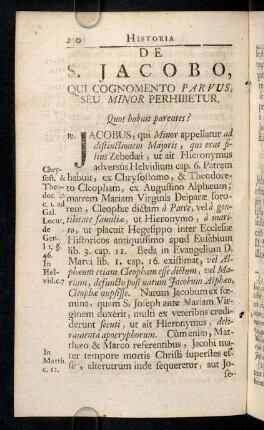 210 HISTORIA
DE
S. JACOBO,
QUI COGNOMENTO PARVUS,
SEU MINOR PERHIBETUR.
Quot habuit parentes?
JACOBUS, qui Minor appellatur ad
distinctionem Majoris, qui erat fi-
lius Zebedæi, ut ait Hieronymus
adversus Helvidium cap. 6. Patrem
Chry-
sost. &
Theo-
dor.
c. 1. ad
Gal.
Locut.
de
Gen.
46.
In
Hel-
vid.c.7
habuit, ex Chrysostomo, & Theodore-
to Cleopham, ex Augustino Alphæum;
matrem Mariam Virginis Deiparæ soro-
rem, Cleophæ dictam à Patre, vel à gen-
tilitate familiæ, ut Hieronymo, à mari-
to, ut placuit Hegesippo inter Ecclesiæ
Historicos antiquissimo apud Eusebium
lib. 3. cap. 11. Beda in Evangelium D.
Marci lib. 1. cap. 16. existimat, vel Al-
phæum etiam Cleopham esse dictum, vel Ma-
riam, defuncto post natum Jacobum Alphæo,
Cleophæ nupsisse. Natum Jacobum ex fœ-
mina, quam S. Joseph ante Mariam Vir-
ginem duxerit, multi ex veteribus credi-
derunt secuti, ut ait Hieronymus, deli-
ramenta apocryphorum. Cùm enim, Mat-
thæo & Marco referentibus, Jacobi ma-
In
Matth.
c. 12.
ter tempore mortis Christi superstes es-
se, alterutrum inde sequeretur, aut Jo-
se-